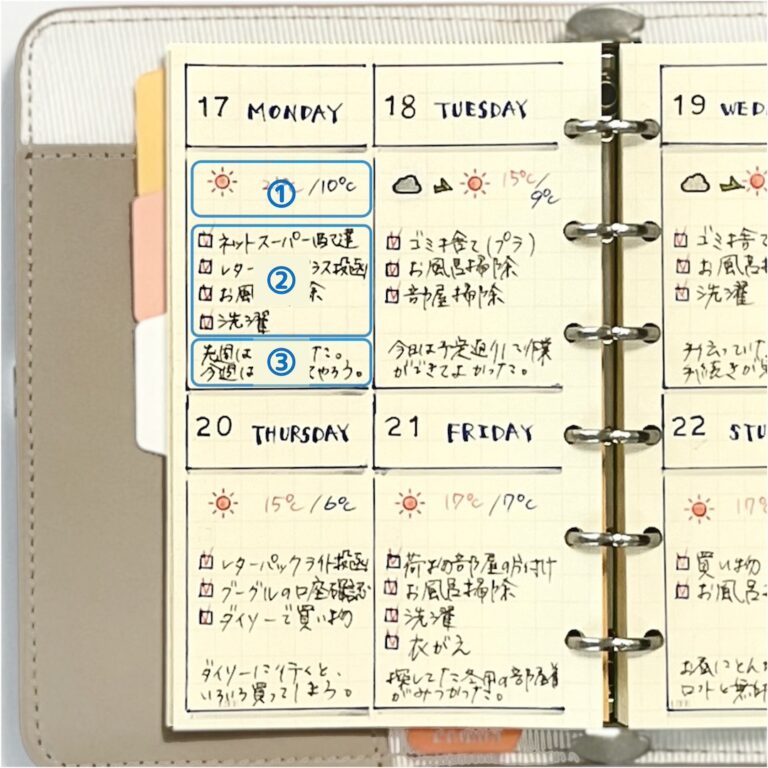 17 MONDAY
① /10℃
ネットスーパー
レター ② ス投函
お風
洗濯
先週は ③ た。
今週は てやろう。
18 TUESDAY
15℃/9℃
ゴミ捨て(プラ)
お風呂掃除
部屋掃除
今日は予定通りに作業
ができてよかった。
19 WED
ゴミ捨て
お風呂掃
洗濯
手伝ってい
手続きが
20 THURSDAY
15℃/6℃
レターパックライト投函
グーグルの口座確認
ダイソーで買い物
ダイソーに行くと、
いろいろ買ってしまう。
21 FRIDAY
17℃/7℃
荷物部屋の片付け
お風呂掃除
洗濯
衣がえ
探してた冬用の部屋着
がみつかった。
22
17℃
買い物
お風呂
お風